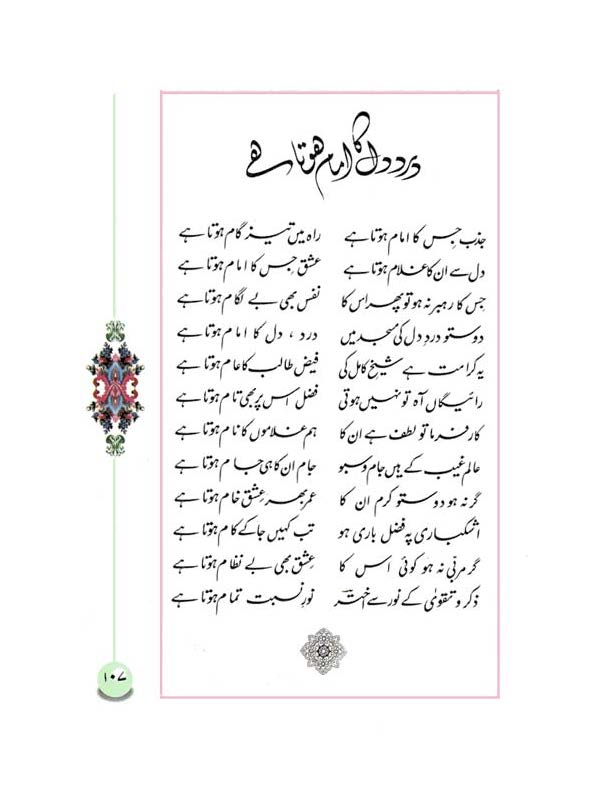 درد دل کا امام ہوتا ہے
جذب جس کا امام ہوتا ہے راہ میں تیز گام ہوتا ہے
دل سے ان کا غلام ہوتا ہے عشق جس کا امام ہوتا ہے
جس کا رہبر نہ ہو تو پھر اس کا نفس بھی بے لگام ہوتا ہے
دوستو دردِ دل کی مسجد میں درد ، دل کا امام ہوتا ہے
یہ کرامت ہے شیخِ کامل کی فیض طالب کا عام ہوتا ہے
رائیگاں آہ تو نہیں ہوتی فضل اس پر بھی تام ہوتا ہے
کارفرما تو لطف ہے ان کا ہم غلاموں کا نام ہوتا ہے
عالمِ غیب کے ہیں جام و سبو جام ان کا ہی جام ہوتا ہے
گر نہ ہو دوستو کرم ان کا عمر بھر عشق خام ہوتا ہے
اشکباری پہ فضل باری ہو تب کہیں جا کے کام ہوتا ہے
گر مربّی نہ ہو کوئی اس کا عشق بھی بے نظام ہوتا ہے
ذکر و تقویٰ کے نور سے اختر نورِ نسبت تمام ہوتا ہے
۱۰۷